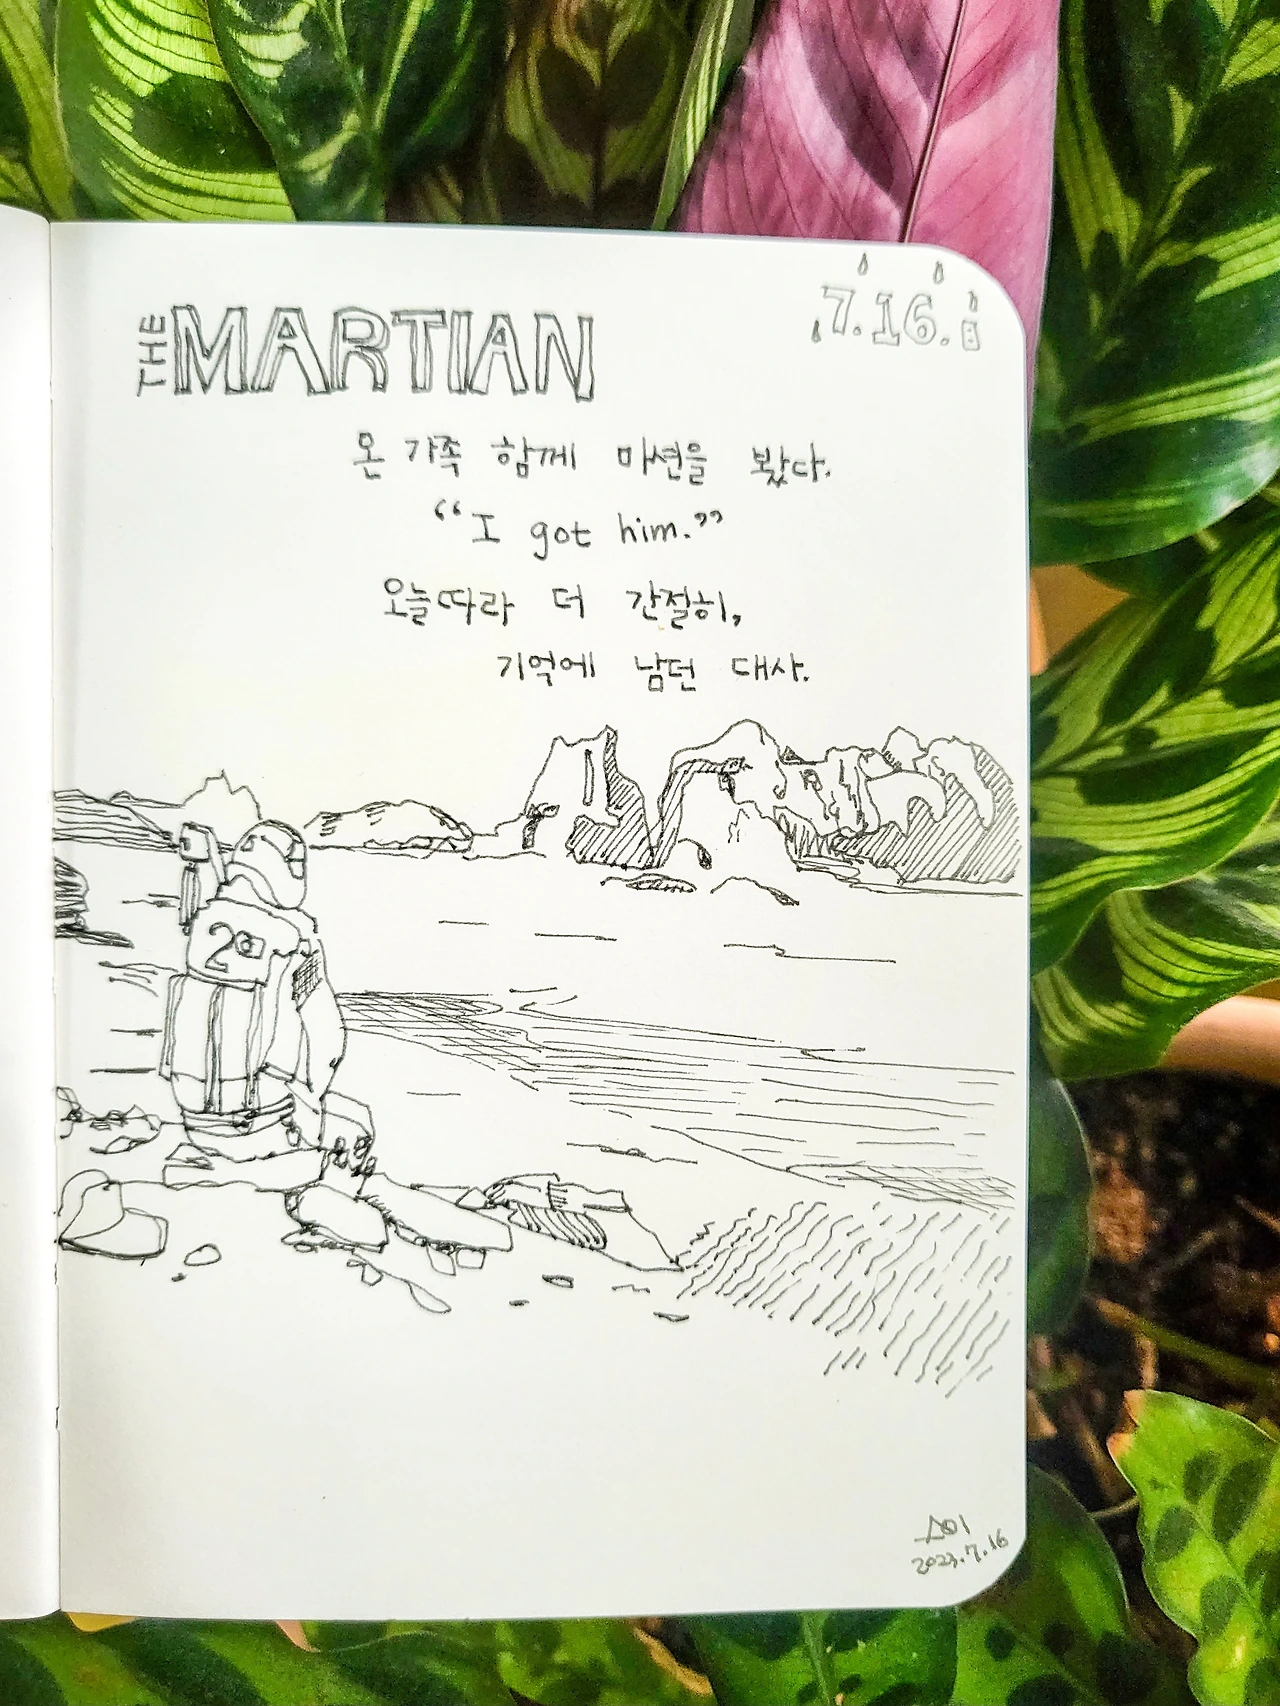 THE MARTIAN
7.16.일
온 가족 함께 마션을 봤다.
“I got him.”
오늘따라 더 간절히,
기억에 남던 대사.
20
2023.7.16